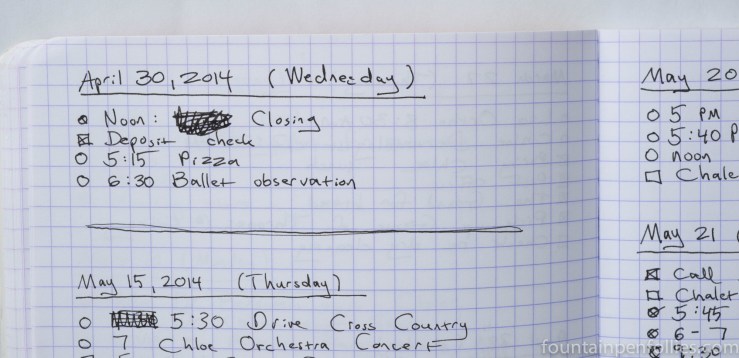 April 30, 2014 (Wednesday)
Noon: Closing
Deposit check
5:15 Pizza
6:30 Ballet observation
May 15, 2014 (Thursday)
5:30 Drive Cross Country
7 Chloe Orchestra Concert
May 20
5 PM
5:40 P
noon
Chale
May 21 (
Call
Chalet
5:45
6-7
fountainpenfollies.com